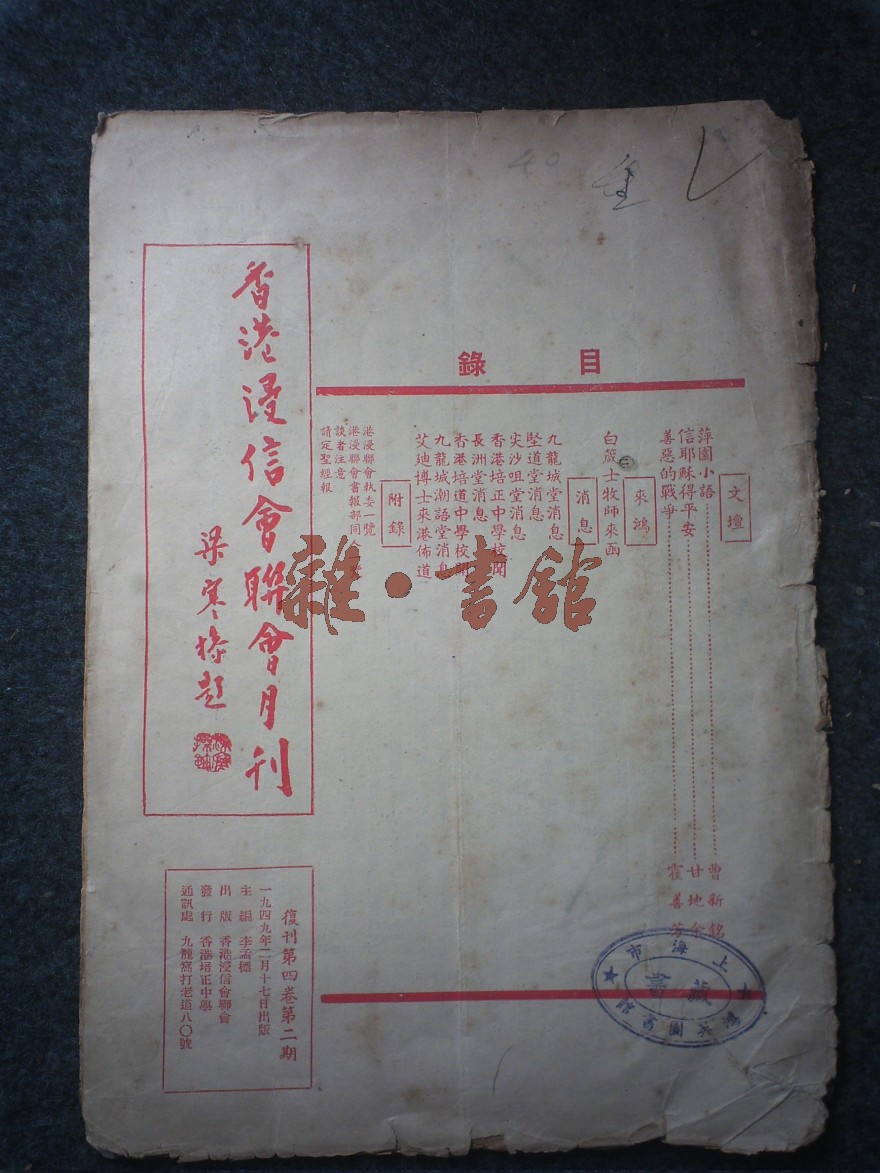 40
目錄
文壇
萍園小語 曹新銘
信耶穌得平安 甘地
善惡的戰爭 霍善芳
來鴻
白箴士牧師來函
消息
九龍城堂消息
堅道堂消息
尖沙咀堂消息
香港培正中學校聞
長洲堂消息
香港培道中學校聞
九龍城潮語堂消息
艾廸博士來港佈道
附錄
港浸聯會執委一覽
港浸聯會書報部同
讀者注意
請定聖經報
香港浸信會聯會月刊
梁寒操題
復刊第四卷第二期
一九四九年二月十七日出版
主編 李孟標
出版 香港浸信會聯會
發行 香港培正中學
通訊處 九龍窩打老道八〇號
上海市
鴻英圖書館
藏書
雜·書館